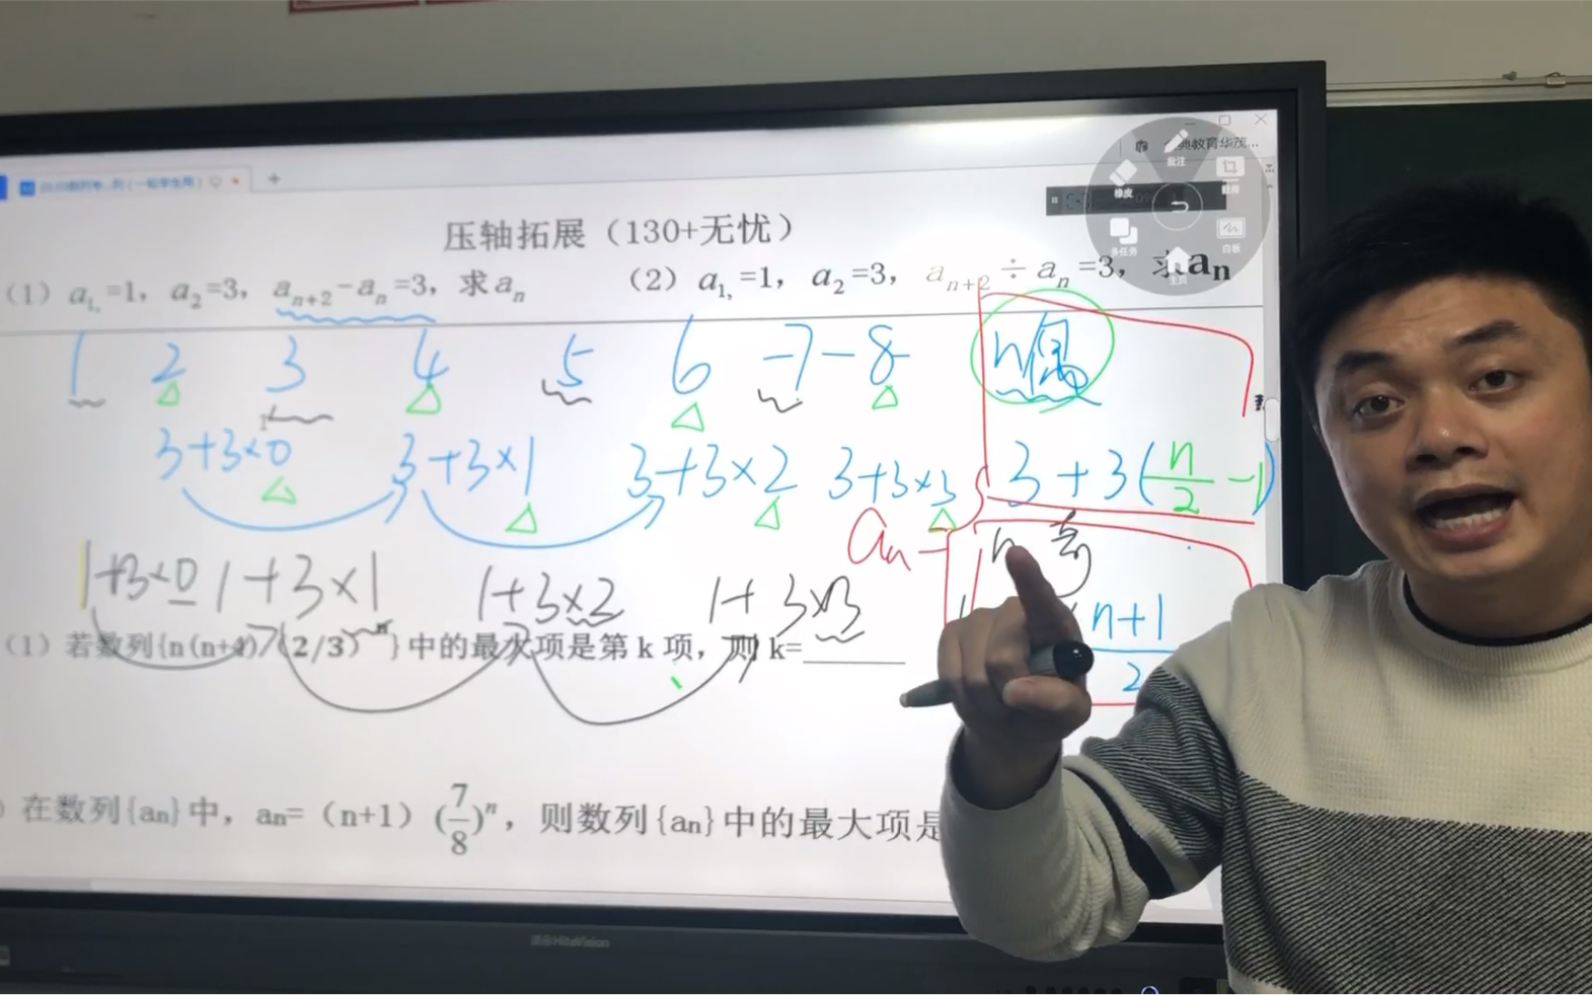 典教育华茂...
批注
橡皮
多任务
白板
压轴拓展（130+无忧）
（1）a₁,=1，a₂=3，aₙ₊₂-aₙ=3，求aₙ （2）a₁,=1，a₂=3，aₙ₊₂÷aₙ=3，求aₙ
1 2 3 4 5 6 -7-8 n偶
3+3×0 3+3×1 3+3×2 3+3×3 3+3(n/2-1)
aₙ= n奇
1+3×0 1+3×1 1+3×2 1+3×3 n+1
2
（1）若数列{n(n+4)(2/3)^n}中的最大项是第k项，则k=______
在数列{an}中，an=（n+1）(7/8)ⁿ，则数列{an}中的最大项是
HiteVision